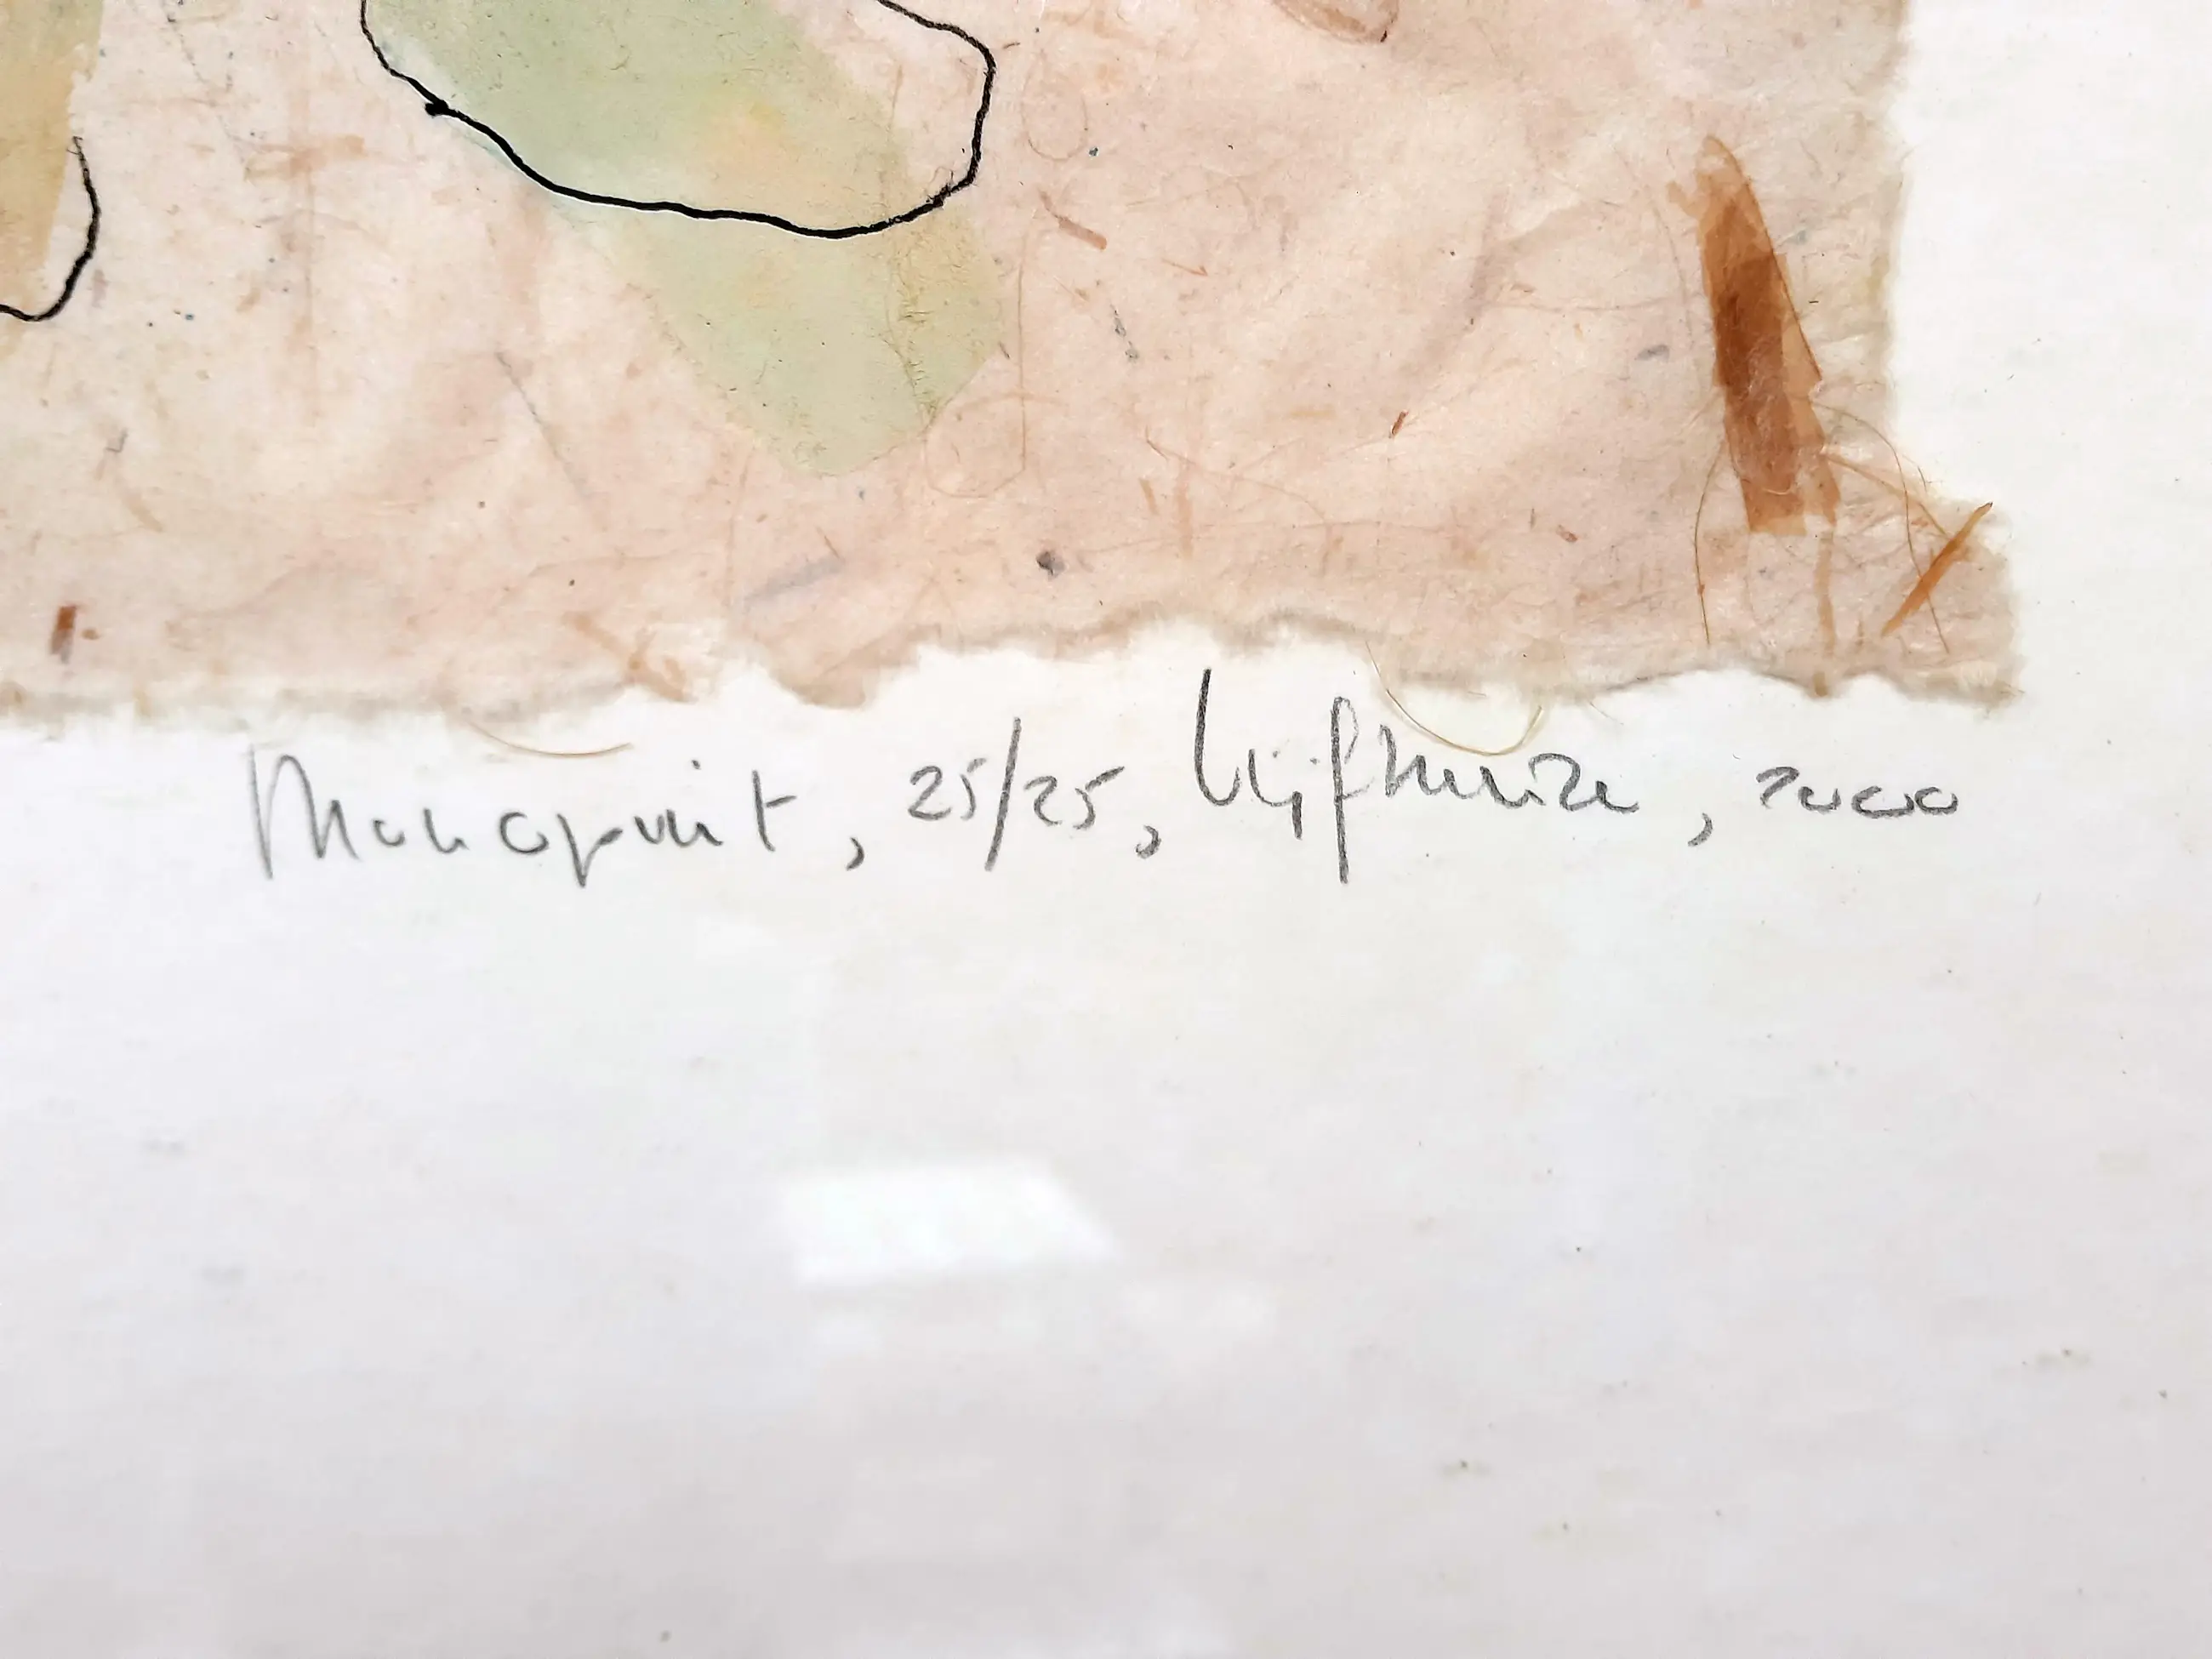 Monoprint, 25/25, , 2000